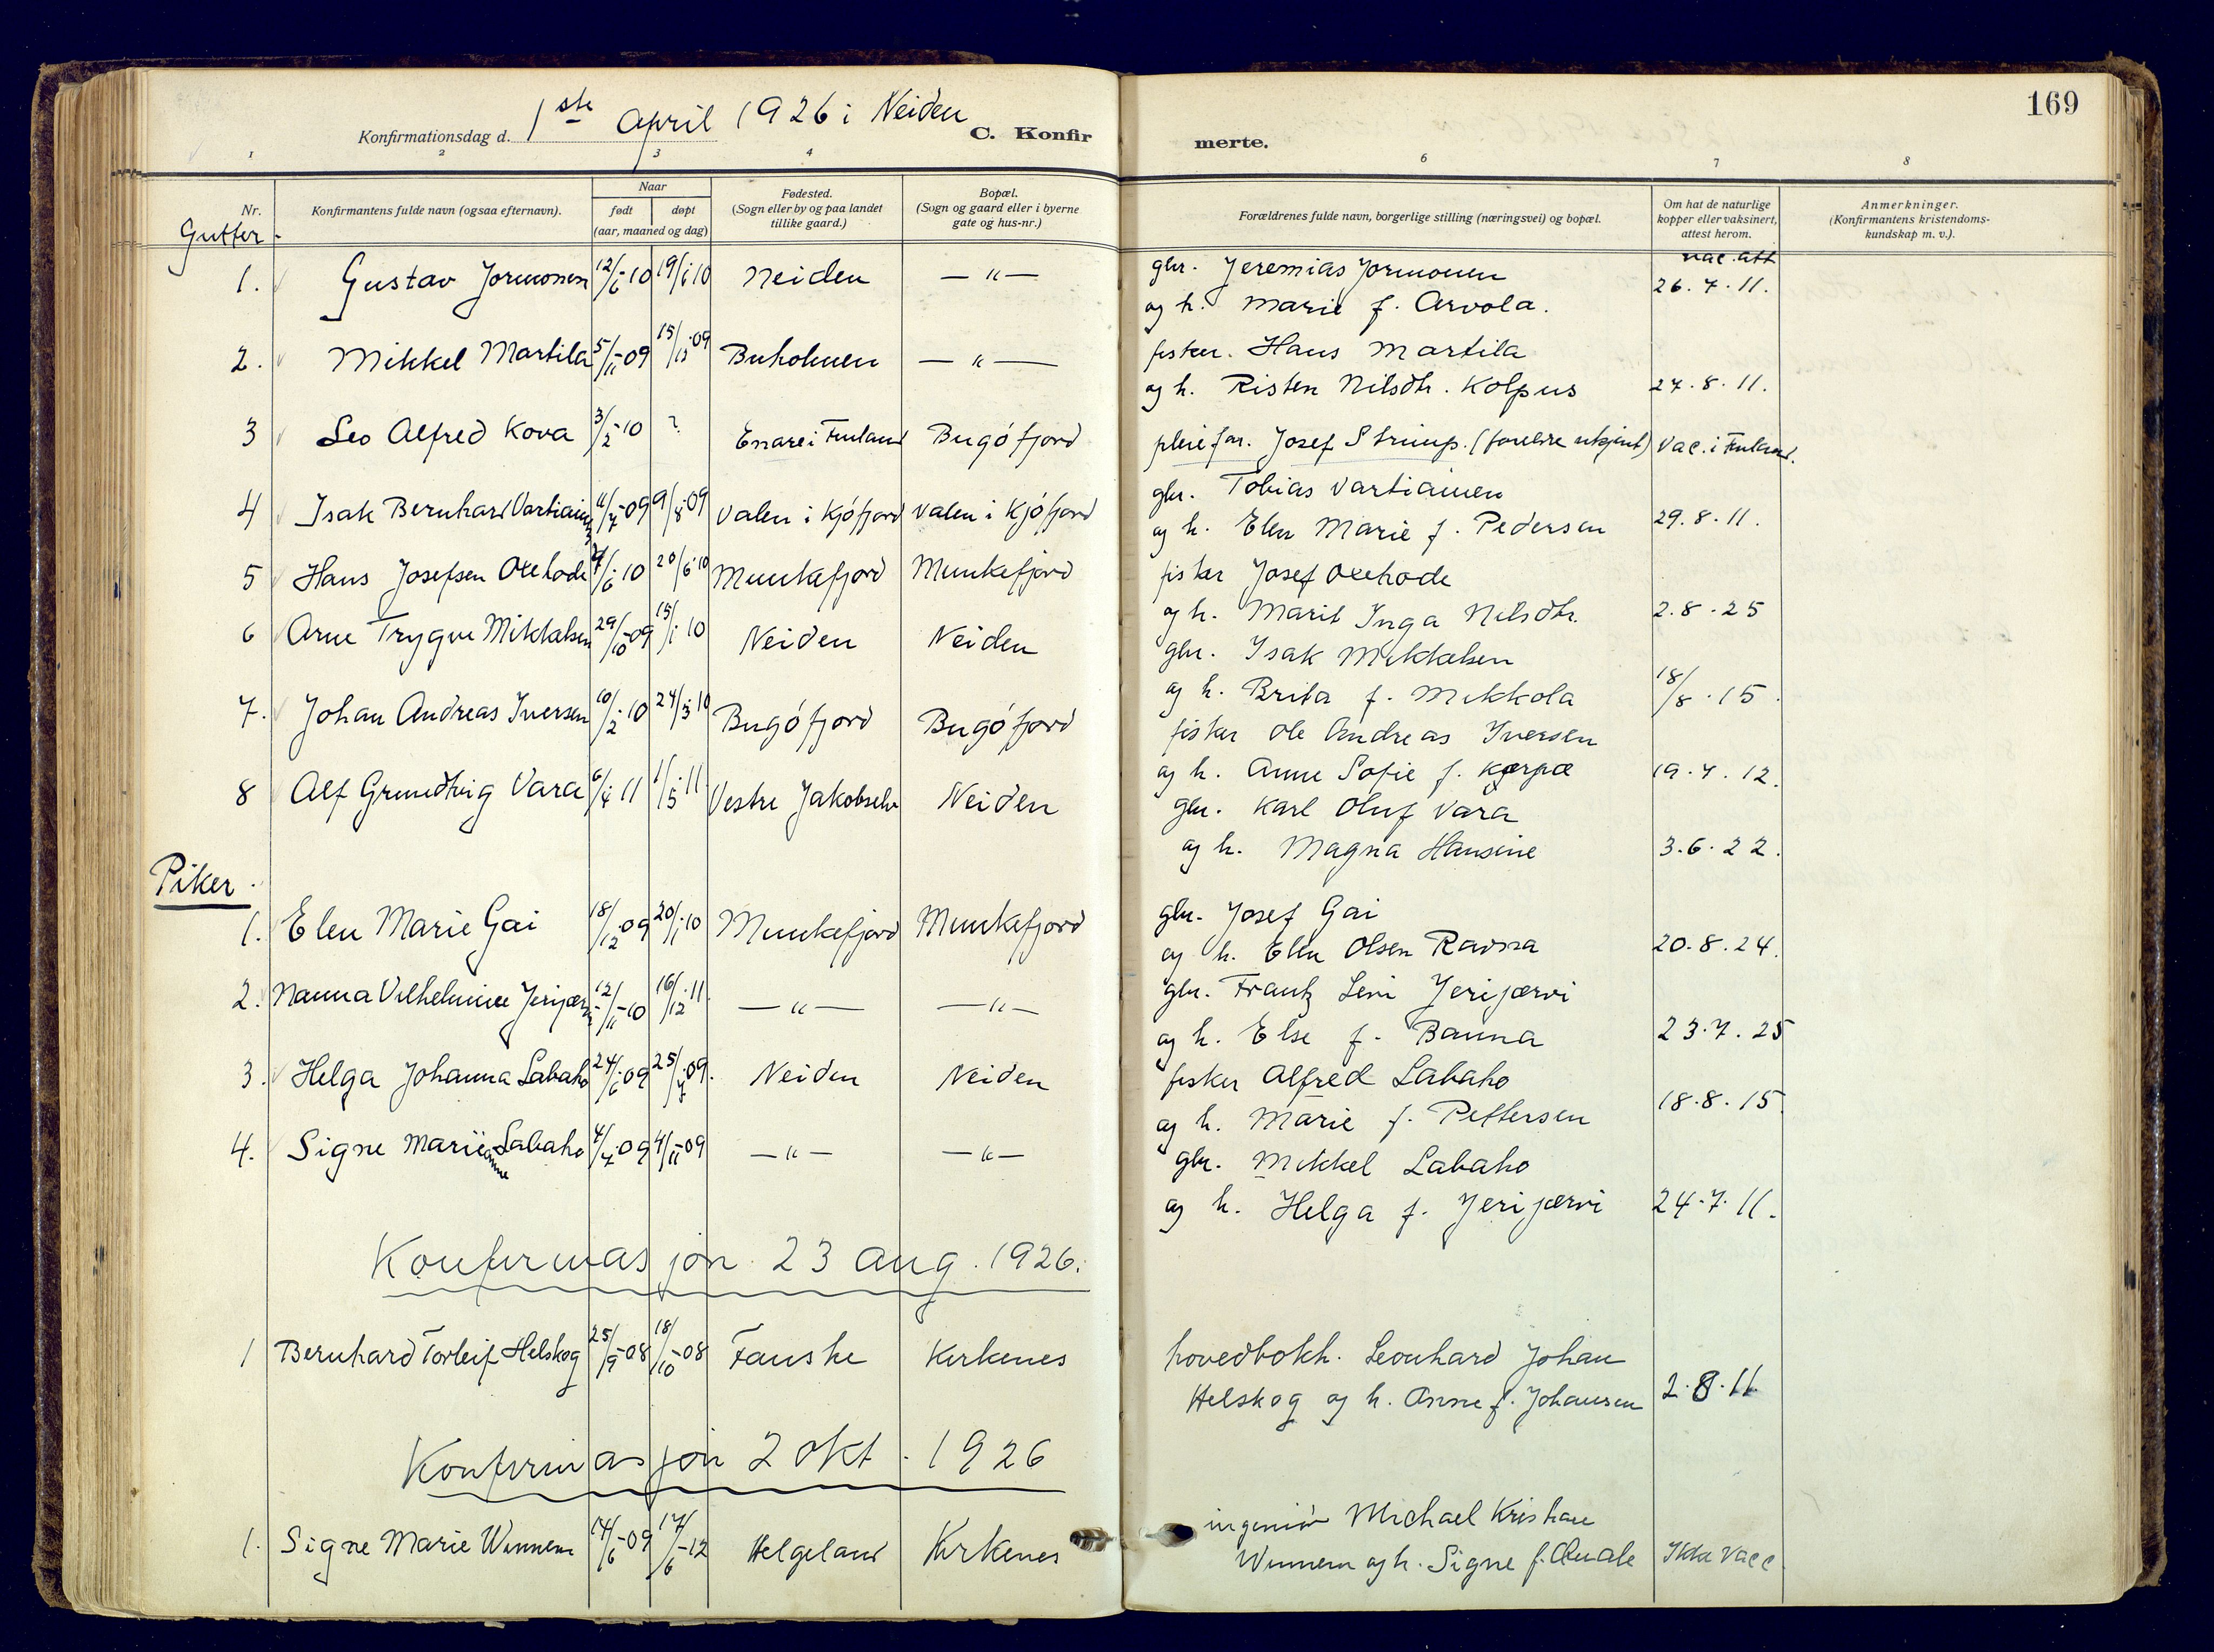 169
Konfirmationsdag d. 1ste April 1926 i Neiden C. Konfirmerte.
1 2 3 4 6 7 8
Nr. Konfirmantens fulde navn (ogsaa efternavn). Naar født døpt (aar, maaned og dag) Fødested. (Sogn eller by og paa landet tillike gaard.) Bopæl. (Sogn og gaard eller i byerne gate og hus-nr.) Forældrenes fulde navn, borgerlige stilling (næringsvei) og bopæl. Om hat de naturlige kopper eller vaksinert, attest herom. Anmerkninger. (Konfirmantens kristendomskundskap m. v.).
Gutter.
1. Gustav Jormonen 12/6-10 19/6 10 Neiden — " — gbr. Jeremias Jormonen vac. att
og h. Marie f. Arvola. 26.7.11.
2. Mikkel Martila 5/11-09 15/12-09 Buholmen — " — fisker. Hans Martila
og h. Risten Nilsdtr. Kolpus 24.8.11.
3 Leo Alfred Kova 3/2-10 ? Enare i Finland Bugöfjord pleiefar. Josef Strimp. (foreldre ukjent) Vac. i Finland.
4 Isak Bernhard Vartiainen 11/7-09 9/8-09 Valen i Kjöfjord Valen i Kjöfjord gbr. Tobias Vartiainen
og h. Elen Marie f. Pedersen 29.8.11.
5 Hans Josefsen Oxehode /6-10 20/6-10 Munkefjord Munkefjord fisker Josef Oxehode
og h. Marit Inga Nilsdtr. 2.8.25
6 Arne Trygve Mikkelsen 29/10-09 15/1 10 Neiden Neiden gbr. Isak Mikkelsen
og h. Brita f. Mikkola 18/8.15.
7. Johan Andreas Iversen 10/2-10 24/3-10 Bugöfjord Bugöfjord fisker Ole Andreas Iversen
og h. Anne Sofie f. Karpæ 19.7.12.
8 Alf Grundtvig Vara 6/4 11 1/5-11 Vestre Jakobselv Neiden gbr. Karl Oluf Vara
og h. Magna Hansine 3.6.22.
Piker.
1. Elen Marie Gai 18/12-09 20/1-10 Munkefjord Munkefjord gbr. Josef Gai
og h. Elen Olsen Ravna 20.8.24.
2. Nanna Vilhelmine Jerijærvi 12/11-10 16/12-11 — " — — " — gbr. Frantz Levi Jerijærvi
og h. Else f. Banna 23.7.25
3. Helga Johanna Labaho 24/6-09 25/7-09. Neiden Neiden fisker Alfred Labaho
og h. Marie f. Pettersen 18.8.15.
4. Signe Marianne Labaho 4/7-09 4/11-09 — " — — " — gbr. Mikkel Labaho
og h. Helga f. Jerijærvi 24.7.11.
Konfirmasjon 23 aug. 1926.
1 Bernhard Torleif Helskog 25/9-08 18/10-08 Fauske Kirkenes hovedbokh. Leonhard Johan
Helskog og h. Anne f. Johansen 2.8.11
Konfirmasjon 2 okt. 1926
1. Signe Marie Winnem 14/6-09 17/6-12 Helgeland Kirkenes ingeniör Michael Kristian
Winnem og h. Signe f. Quale Ikke vacc.